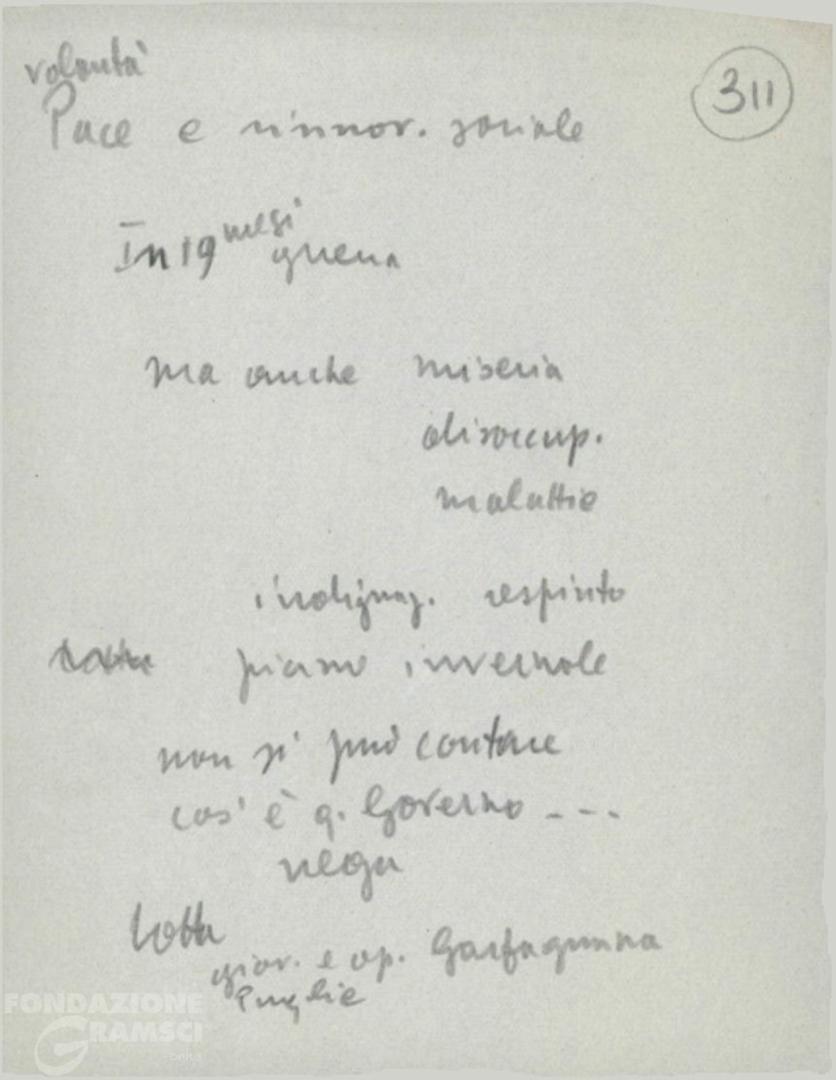 volontà
311
Pace e rinnov. sociale
In 19 mesi guerra
ma anche miseria
disoccup.
malattie
indignaz. respinto
piano invernale
non si può contare
cos' è q. Governo ---
nega
lotta
giov. e op. Garfagnana
Puglie
FONDAZIONE
GRAMSCI
onlus